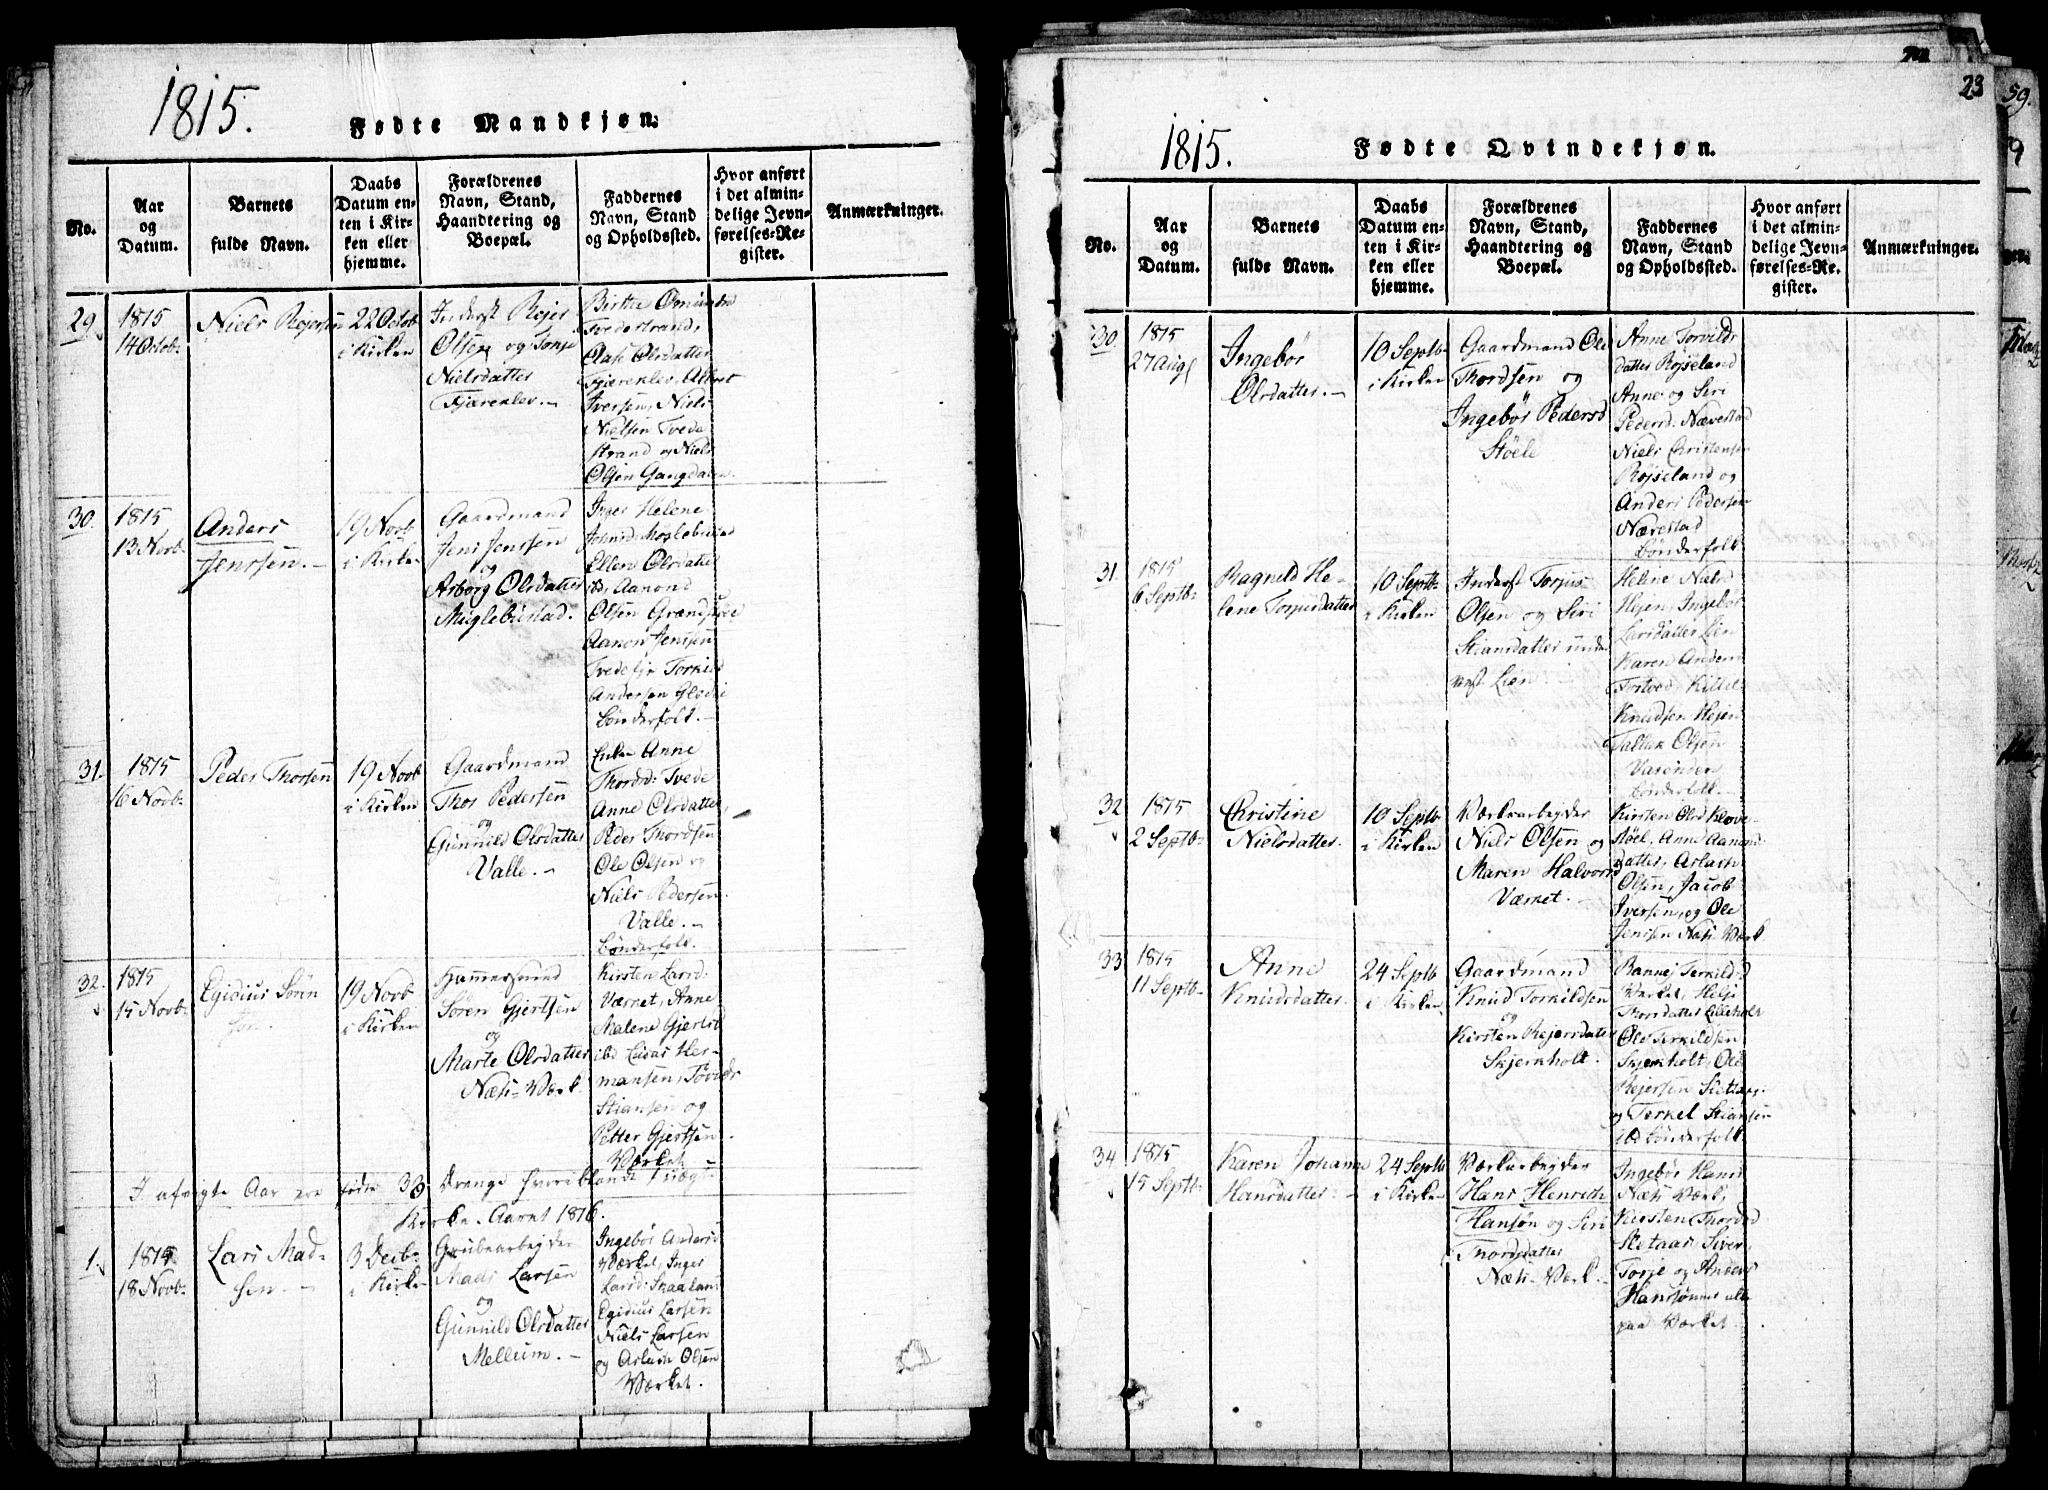 1815.
Fødte Mandkjøn.
No.
Aar
og
Datum.
Barnets
fulde Navn.
Daabs
Datum en-
ten i Kir-
ken eller
hjemme.
Forældrenes
Navn, Stand,
Haandtering og
Boepæl.
Faddernes
Navn, Stand
og Opholdssted.
Hvor anført
i det almin-
delige Jevn-
førelses-Re-
gister.
Anmærkninger.
29
1815
14 Octob:
Niels Rejersen
22 Octob
i Kirken
Inderst Rejer
Olsen og Tonje
Nielsdatter
Fjærenlev.-
Birthe
Tvedestrand,
Olsdatter
Iversen, Niels
Nielsen Tvede
strand og Niels
Olsen Gangdalen.
30.
1815
13 Novb:
Anders
Jenssen.-
19 Novb
i Kirken
Gaardmand
Jens Jenssen
og
Asborg Olsdatter
Møglebustad.
Inger Helene
Ellen Olsdatter
ibd, Aanond
Olsen
Aanon Jenssen
Torkild
Andersen
bønderfolk.-
31.
1815
16 Novb:
Peder Thorsen
19 Novb
i Kirken
Gaardmand
Thor Pedersen
og
Gunnild Olsdatter
Valle.-
Enke Anne
Thordsd: Tvede
Anne Olsdatter,
Peder Thordsen
Ole Olsen og
Niels Pedersen
Valle.-
bønderfolk.
32.
1815
15 Novb:
Egidius Sørn
søn.
19 Novb
i Kirken
Hammersmed
Søren Gjertsen
og
Marte Olsdatter
Næs-Værk
Kirsten Larsd:
Værket, Anne
Malene Gjertsd
ibd Lucas Her-
mansen,
Stiansen og
Petter Gjertsen
Værket
I afvigte Aar ere fødte 38 Drenge hvoriblandt 1 uægt-
Kirke-Aaret 1816.
1.
1815
18 Novb:
Lars Mad-
sen.-
3 Decb:
i Kirken
Grubearbejder
Mads Larsen
og
Gunnild Olsdatter
Mellum.-
Ingebør Andersd
Værket, Inger
Larsd: Skaalan
Egidius Larsen
Niels Larsen
og Aslach Olsen
Værket.
23
59.
1815.
Fødte Qvindekjøn.
No.
Aar
og
Datum.
Barnets
fulde Navn.
Daabs
Datum en-
ten i Kir-
ken eller
hjemme.
Forældrenes
Navn, Stand,
Haandtering og
Boepæl.
Faddernes
Navn, Stand
og Opholdssted.
Hvor anført
i det almin-
delige Jevn-
førelses-Re-
gister.
Anmærkninger.
30
1815
27 Aug
Ingebør
Olsdatter.-
10 Septb
i Kirken
Gaardmand Ole
Thordsen og
Ingebør Pedersd
Støele
Anne Torvilds
datter Røjseland
Anne og Siri
Pedersd. Nævestad
Niels Christensen
Røjseland og
Anders Pedersen
Nærestad
bønderfolk.
31.
1815
6 Septb:
Ragnild He-
lene Torjusdatter
10 Septb:
i Kirken
Inderst Torjus
Olsen og Siri
Steansdatter under
Lien
Helene Nielsd
Hejen, Ingebør
Larsdatter Lien
Karen Anders
Kittel
Knudsen Hejen
Olsen
bønderfolk.-
32
1815
2 Septb:
Christine
Nielsdatter.
10 Septb
i Kirken
Værksarbejder
Niels Olsen og
Maren Halvorsd
Værket.-
Kirsten Olsd Kløve-
støel, Anne Aanond
datter, Aslach
Olsen, Jacob
Iversen, og Ole
Jenssen Næs Værk
33
1815
11 Septb:
Anne
Knudsdatter.
24 Septb
i Kirken
Gaardmand
Knud Torkildsen
og
Kirsten Rejersdatter
Skjerkholt.
Rannej Terkildsd
Værket, Helje
Thorsdatter Lilleholt
Ole Terkildsen
Skjerkholt, Ole
Rejersen Sletaas
og Terkel Stiansen
ibd bønderfolk
34
1815
15 Septb:
Karen Johanne
Hansdatter.-
24 Septb
i Kirken
Værksarbejder
Hans Henrich
Hansøn og Siri
Thordsdatter
Næs-Værk.-
Ingebør Hansd
Næs Værk,
Kirsten Thordsd
Sletaas, Siver,
Torje og Anders
Hanssønner alle
paa Værket.